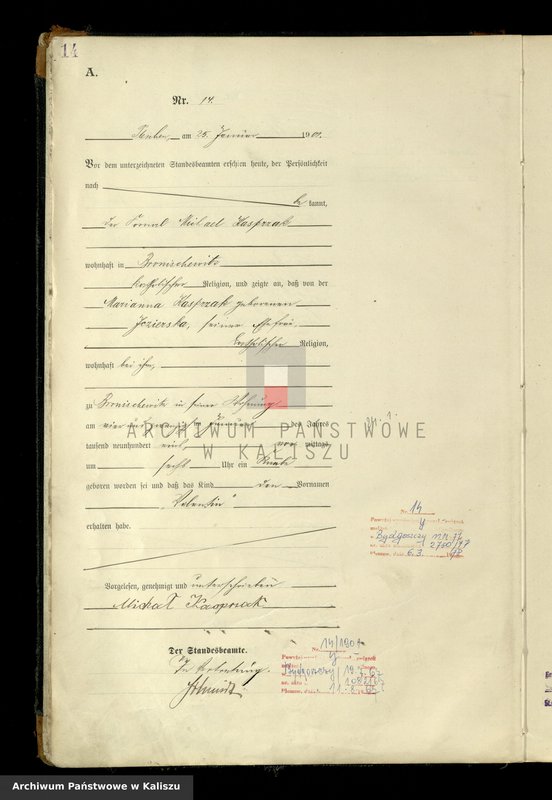 14
A.
Nr. 14.
am 25. Januar 1901.
Vor dem unterzeichneten Standesbeamten erschien heute, der Persönlichkeit
nach
be kannt,
der Fornal Michael Kasprzak
wohnhaft in Bronischewitz
katholischer Religion, und zeigte an, daß von der
Marianna Kasprzak geborenen
Jezierska, seiner Ehefrau,
katholischer Religion,
wohnhaft bei ihm,
zu Bronischewitz in seiner Wohnung
am vier und zwanzigsten Januar des Jahres
tausend neunhundert eins, vor mittags
um sechs Uhr ein Knabe
geboren worden sei und daß das Kind den Vornamen
"Valentin"
erhalten habe.
Vorgelesen, genehmigt und unterschrieben
Michał Kasprzak
Der Standesbeamte.
In Vertretung.
Schmidt
Nr. 14
Bydgoszcz
6.3.
Nr. 14/1901
Bydgoszcz
ARCHIWUM PAŃSTWOWE
W KALISZU
Archiwum Państwowe w Kaliszu